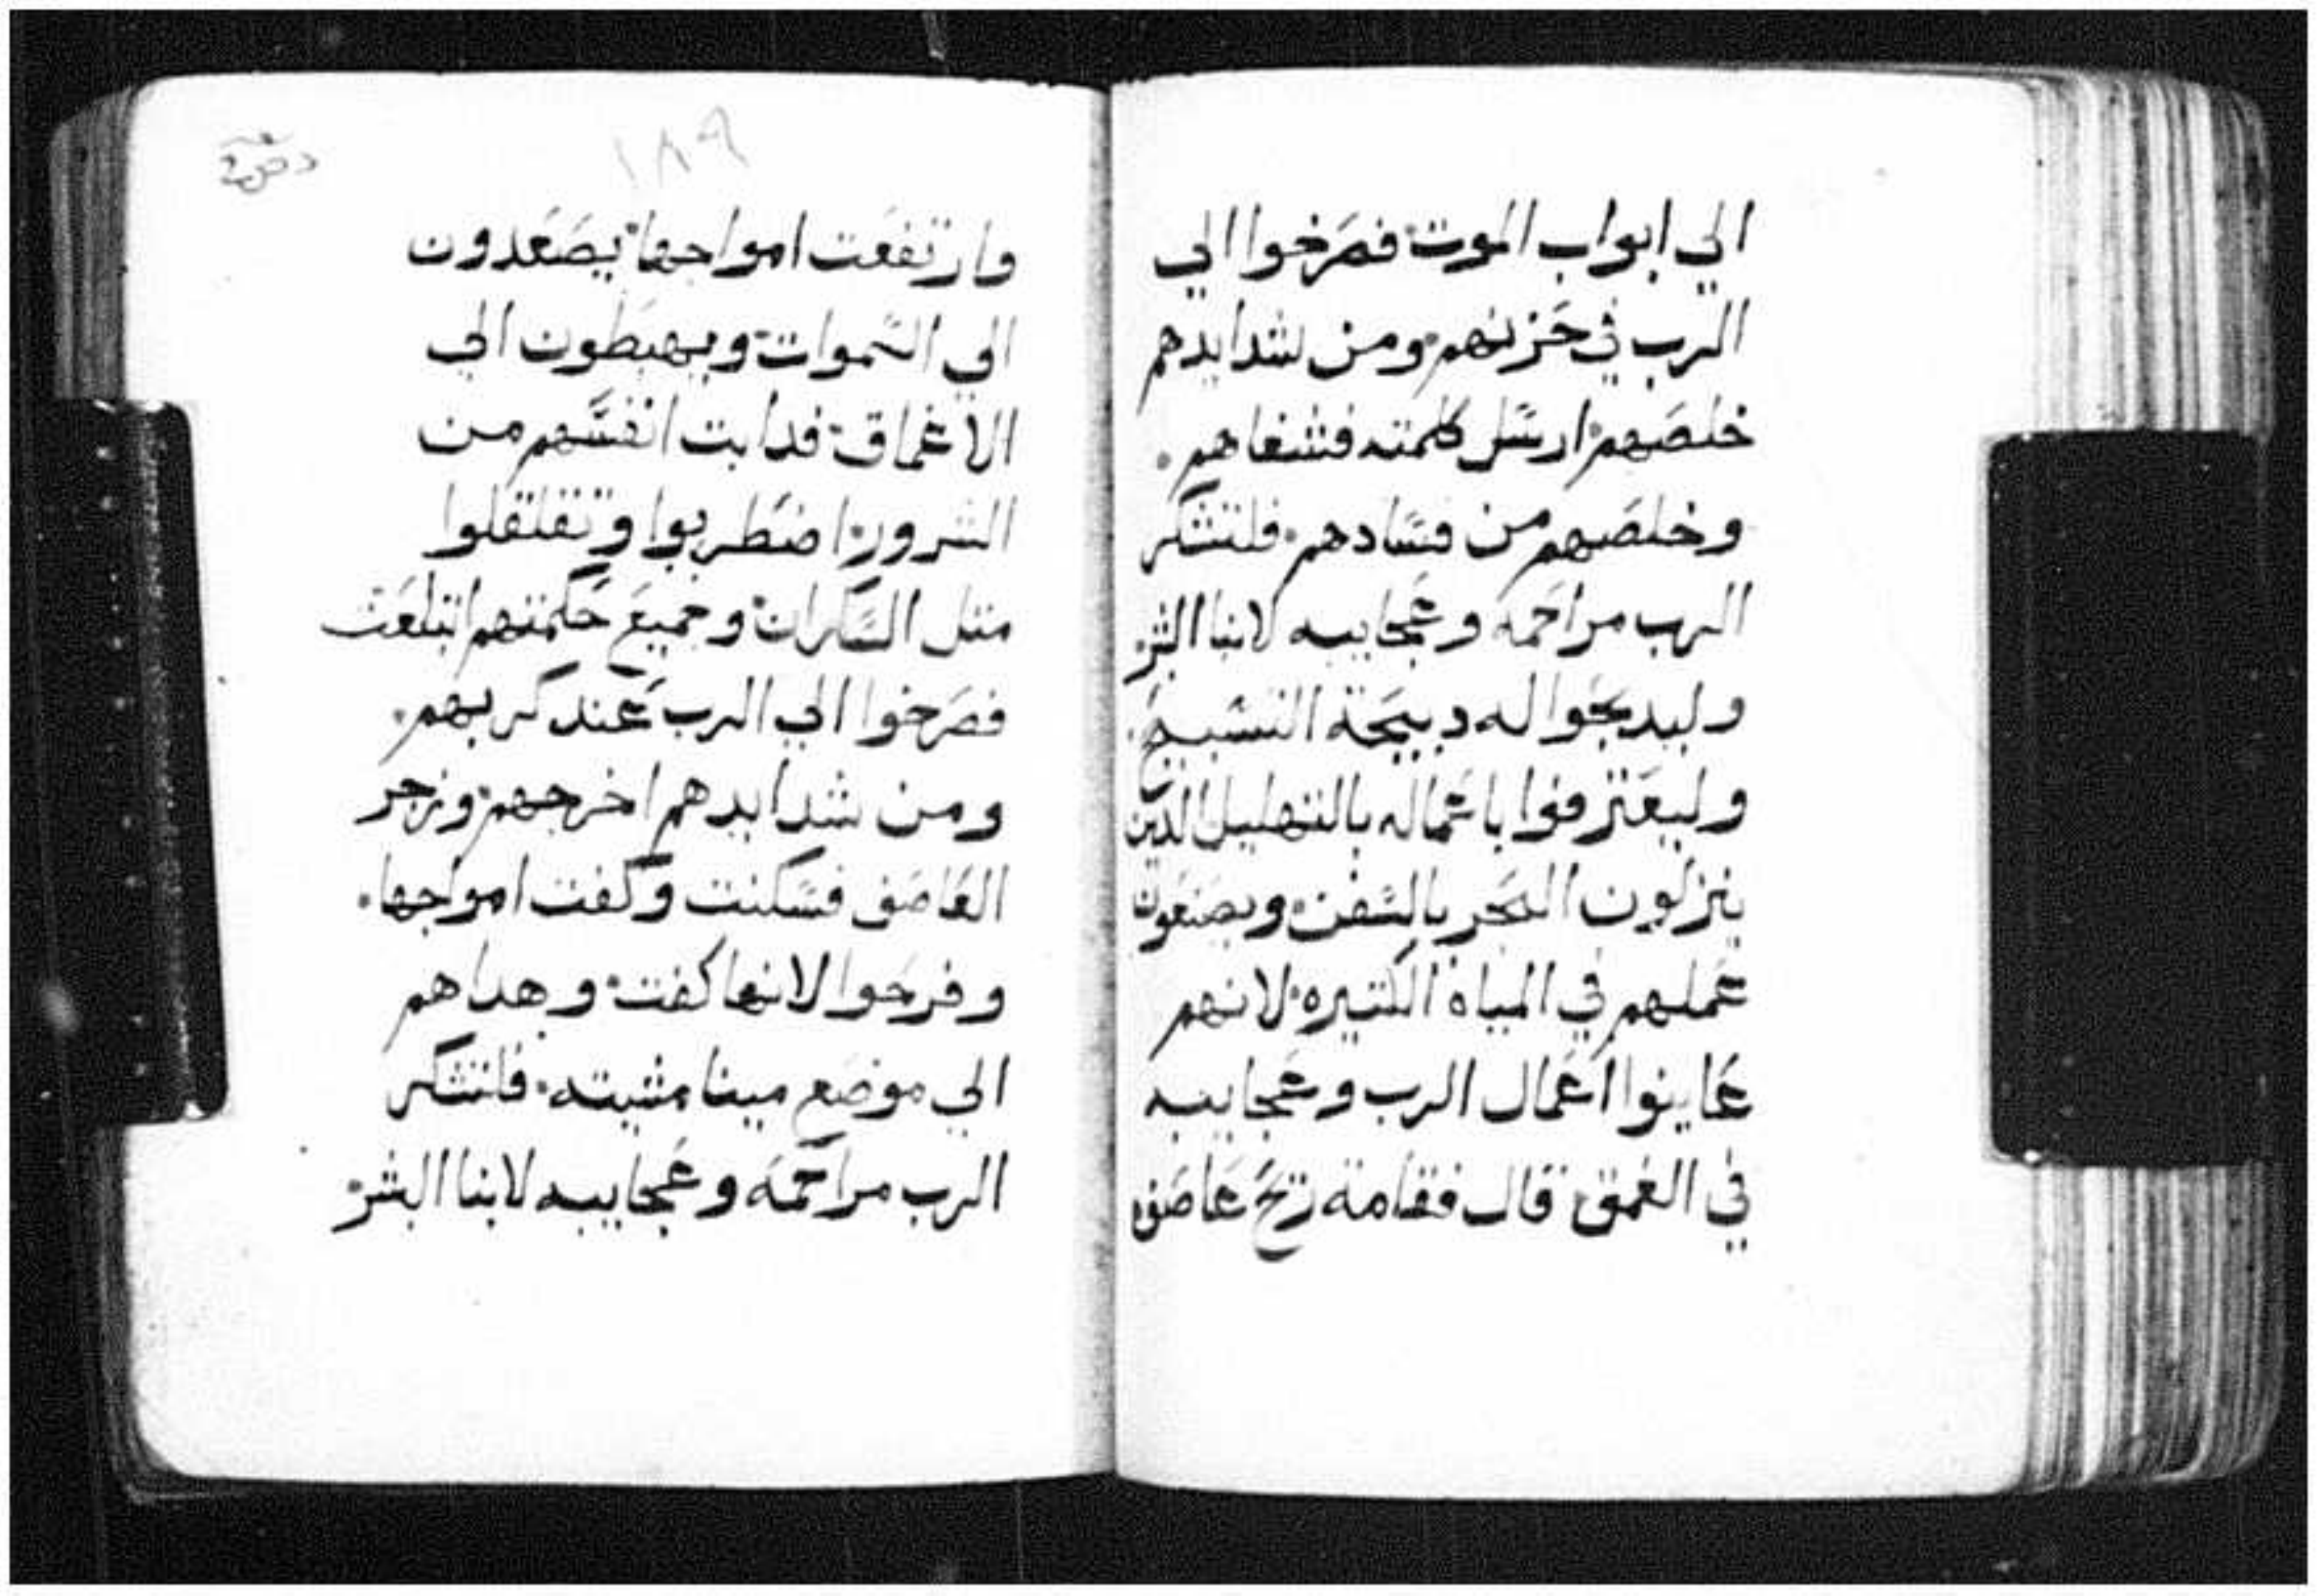 الي ابواب الموت فصرخوا الي
الرب في حزنهم ومن شدايدهم
خلصهم ارسل كلمته فشفاهم.
وخلصهم من فسادهم فلتشكر
الرب مراحمه وعجايبه لابنا البشر
وليدبحوا له دبيحة التسبيح
وليعترفوا باعماله بالتهليل الدين
ينزلون البحر بالسفن ويصنعون
عملهم في المياه الكتيره لانهم
عاينوا اعمال الرب وعجايبه
في العمق قال فقامة ريح عاصف
١٨٩
وارتفعت امواجها يصعدون
الي السموات ويهبطون الي
الاعماق فدابت انفسهم من
الشرور اضطربوا وتقلقلوا
متل السكران وجميع حكمتهم ابتلعت
فصرخوا الي الرب عند كربهم.
ومن شدايدهم اخرجهم وزجر
العاصف فسكنت وكفت امواجها.
وفرحوا لانها كفت وهداهم
الي موضع مينا مشيته. فلتشكر
الرب مراحمه وعجايبه لابنا البشر